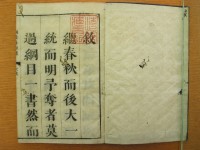 敘
繼春秋而後大一
統而明予奪者莫
過綱目一書然而